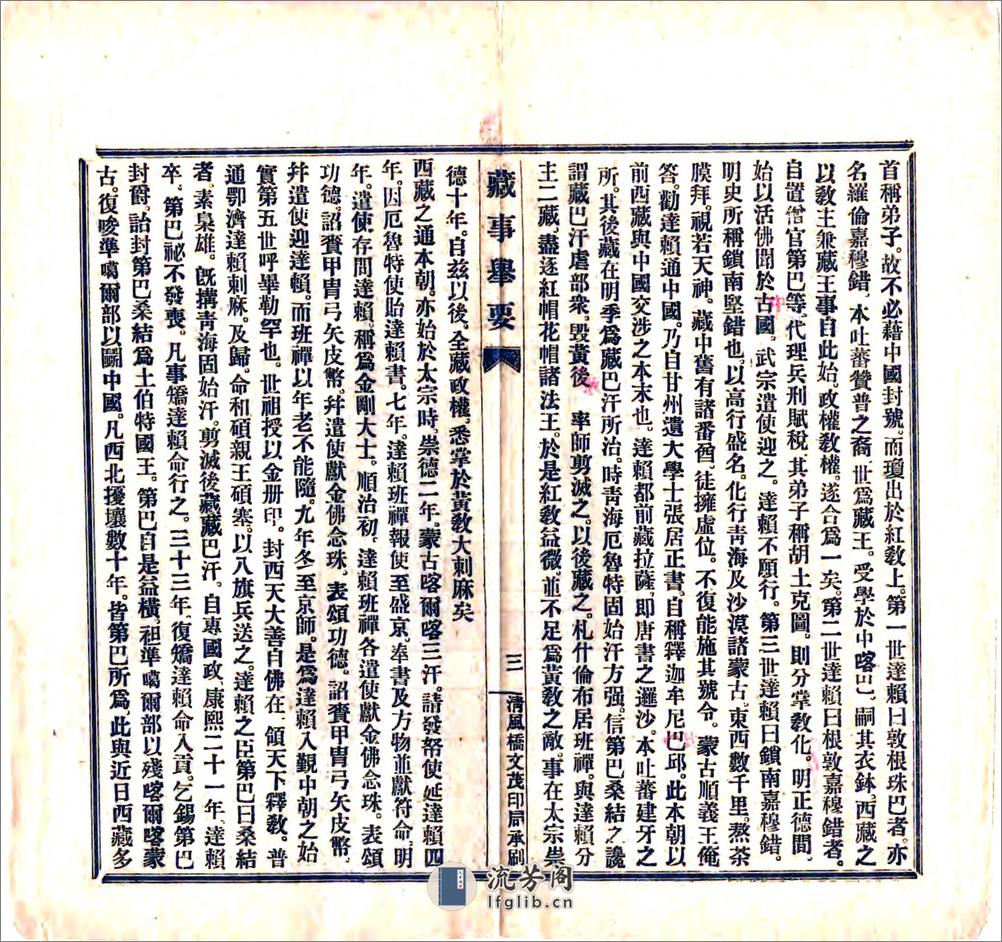 首稱弟子。故不必藉中國封號。而瓊出於紅教上。第一世達賴曰敦根珠巴者。亦
名羅倫嘉穆錯、本吐蕃贊普之裔、世爲藏王。受學於中喀巴、嗣其衣鉢。西藏之
以教主兼藏王事自此始。政權教權。遂合爲一矣。第二世達賴曰根敦嘉穆錯者。
自置僧官第巴等、代理兵刑賦稅、其弟子稱胡土克圖、則分掌教化。明正德間、
始以活佛聞於古國、武宗遣使迎之、達賴不願行。第三世達賴曰鎖南嘉穆錯。
明史所稱鎖南堅錯也。以高行盛名。化行青海及沙漠諸蒙古、東西數千里。熬茶
膜拜。視若天神。藏中舊有諸番酋、徒擁虛位。不復能施其號令。蒙古順義王俺
答。勸達賴通中國。乃自甘州遺大學士張居正書。自稱釋迦牟尼巴邱。此本朝以
前西藏與中國交涉之本末也。達賴都前藏拉薩。即唐書之邏沙。本吐蕃建牙之
所。其後藏在明季爲藏巴汗所治。時青海厄魯特固始汗方强。信第巴桑結之讒
謂藏巴汗虐部衆、毀黃後 率師剪滅之。以後藏之。札什倫布居班禪。與達賴分
主二藏。盡逐紅帽花帽諸法王。於是紅教益微、並不足爲黃教之敵。事在太宗崇
德十年。自茲以後、全藏政權、悉掌於黃教大剌麻矣
藏事舉要
三
清風橋文茂印局承刷
西藏之通本朝。亦始於太宗時、崇德二年。蒙古喀爾喀三汗。請發帑使延達賴四
年。因厄魯特使貽達賴書。七年。達賴班禪報使至盛京。奉書及方物並獻符命、明
年。遣使存問達賴、稱爲金剛大士。順治初、達賴班禪各遣使獻金佛念珠。表頌
功德。詔賚甲冑弓矢皮幣、幷遣使獻金佛念珠、表頌功德。詔賚甲冑弓矢皮幣、
幷遣使迎達賴。而班禪以年老不能隨。九年冬、至京師。是爲達賴入覲中朝之始
實第五世呼畢勒罕也。世祖授以金册印。封西天大善自佛在、領天下釋教。普
通鄂濟達賴剌麻。及歸。命和碩親王碩塞。以八旗兵送之。達賴之臣第巴曰桑結
者、素梟雄。旣搆青海固始汗。剪滅後藏藏巴汗。自專國政、康熙二十一年、達賴
卒、第巴祕不發喪。凡事矯達賴命行之。三十三年、復矯達賴命入貢。乞錫第巴
封爵。詒封第巴桑結爲土伯特國王。第巴自是益橫、祖準噶爾部以殘喀爾喀蒙
古。復唆準噶爾部以鬭中國。凡西北擾壤數十年。皆第巴所爲、此與近日西藏多
流芳阁
lfglib.cn